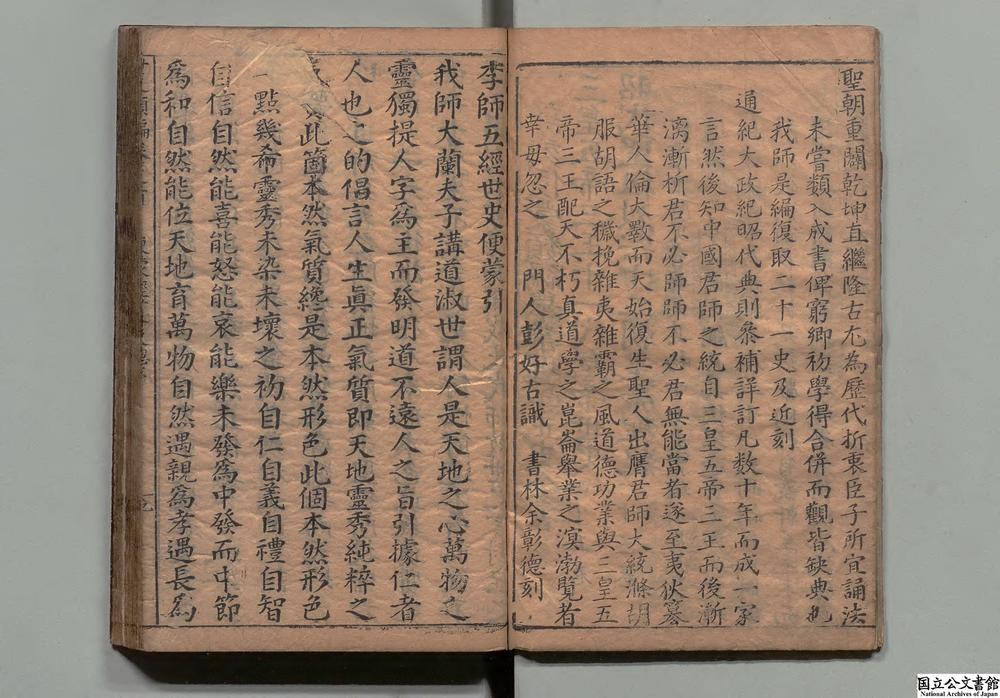 聖朝重闢乾坤直繼隆古尤為歷代折衷臣子所宜誦法
未嘗類入成書俾窮鄉初學得合併而觀皆缺典也
我師是編復取二十一史及近刻
通紀大政紀昭代典則叅補詳訂凡数十年而成一家
言然後知中國君師之統自三皇五帝三王而後漸
漓漸析君不必師師不必君無能當者遂至夷狄篡
華人倫大斁而天始復生聖人出膺君師大統滌胡
服胡語之穢挽雜夷雜霸之風道德功業與三皇五
帝三王配天不朽真道學之崑崙舉業之溟渤覽者
幸毋忽之 門人彭好古識 書林余彰德刻
李師五經世史便蒙引
我師大蘭夫子講道淑世謂人是天地之心萬物之
靈獨提人字為王而發明道不遠人之旨引據仁者
人也之的倡言人生眞正氣質即天地靈秀純粹之
此箇本然氣質纔是本然形色此個本然形色
一點幾希靈秀未染未壞之初自仁自義自禮自智
自信自然能喜能怒能哀能樂未發為中發而中節
為和自然能位天地育萬物自然遇親為孝遇長為
国立公文書館
National Archives of Japan